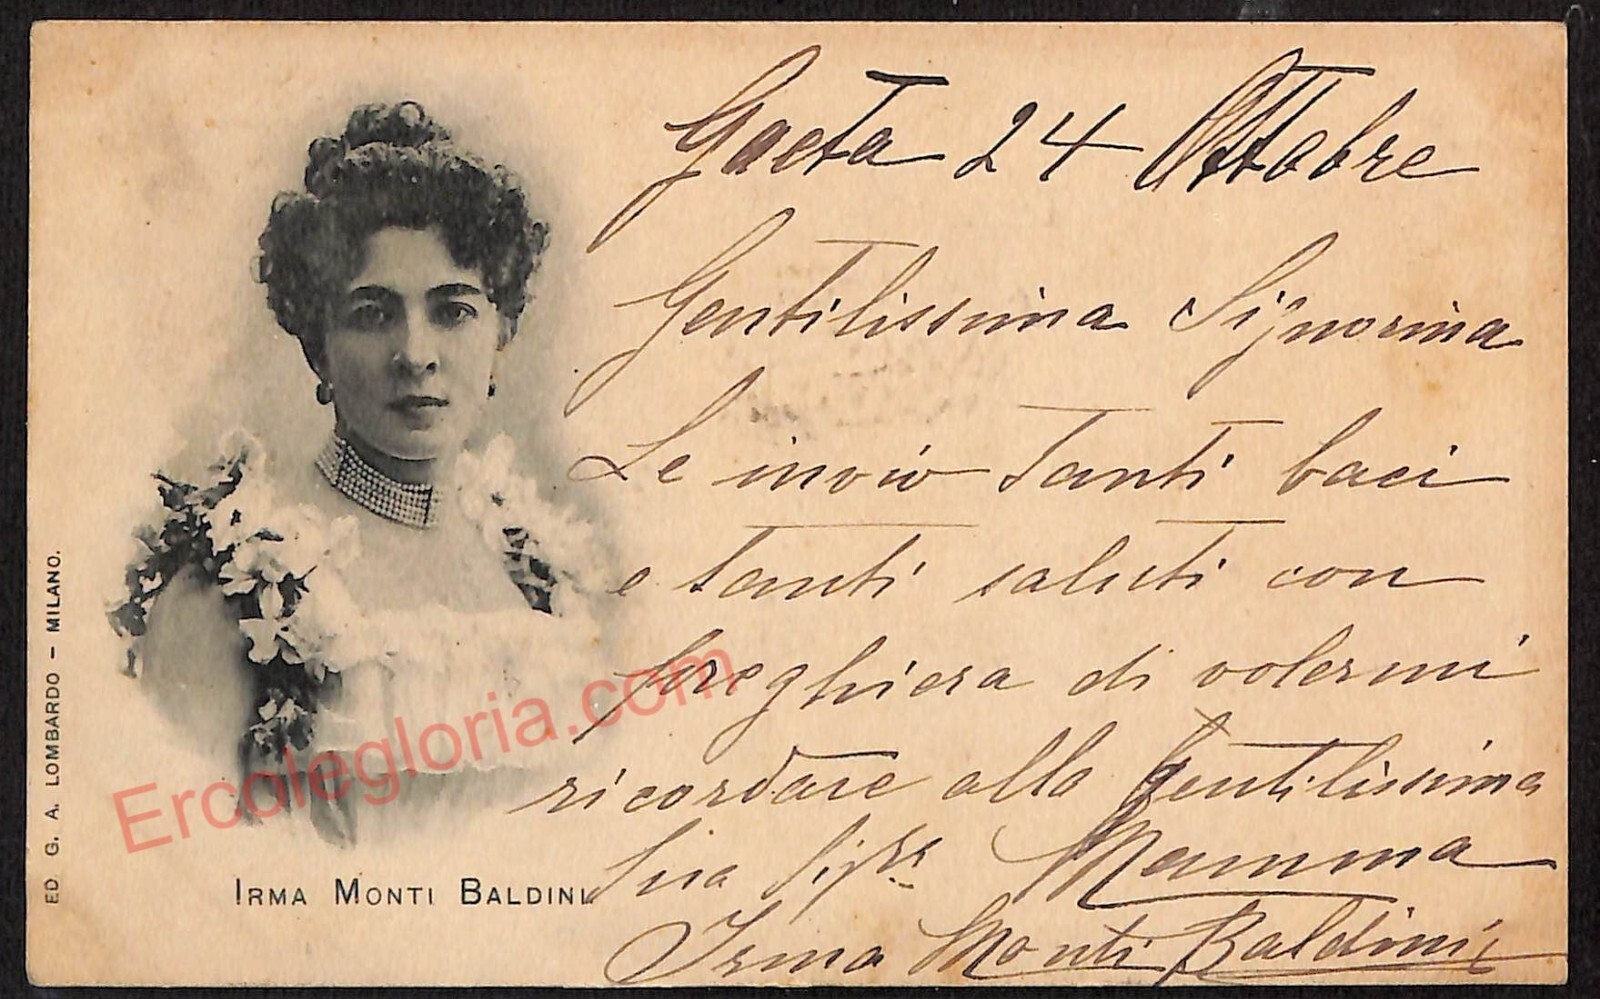 Gaeta 24 Ottobre
Gentilissima Signorina
Le invio tanti baci
e tanti saluti con
preghiera di volermi
ricordare alla Gentilissima
Sua Sig.ra Mamma
Irma Monti Baldini
IRMA MONTI BALDINI
ED. G. A. LOMBARDO – MILANO.
Ercolegloria.com